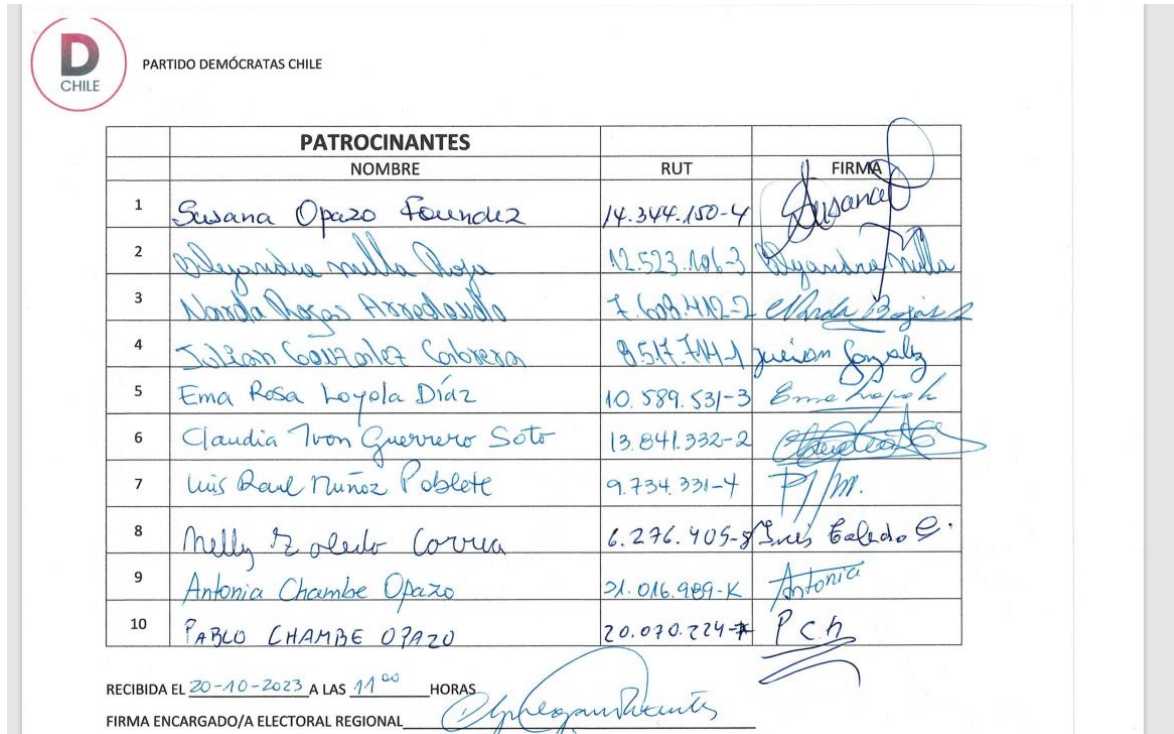 D
CHILE
PARTIDO DEMÓCRATAS CHILE
PATROCINANTES
NOMBRE RUT FIRMA
1 Susana Opazo Foundez 14.344.150-4 Susana
2 Alejandra Milla Rojas 12.523.106-3 Alejandra Milla
3 Narda Rojas Arredondo 7.608.412-2 Narda Rojas A
4 Julian González Cabrera 8.517.714-1 Julian Gonzalez
5 Ema Rosa Loyola Díaz 10.589.531-3 Ema Loyola
6 Claudia Ivon Guerrero Soto 13.841.332-2
7 Luis Raul Muñoz Poblete 9.734.331-4
8 Nelly Toledo Correa 6.276.405-8 Inés Toledo C.
9 Antonia Chambe Opazo 21.016.989-K Antonia
10 PABLO CHAMBE OPAZO 20.070.224- P c.h
RECIBIDA EL 20-10-2023 A LAS 11:00 HORAS
FIRMA ENCARGADO/A ELECTORAL REGIONAL